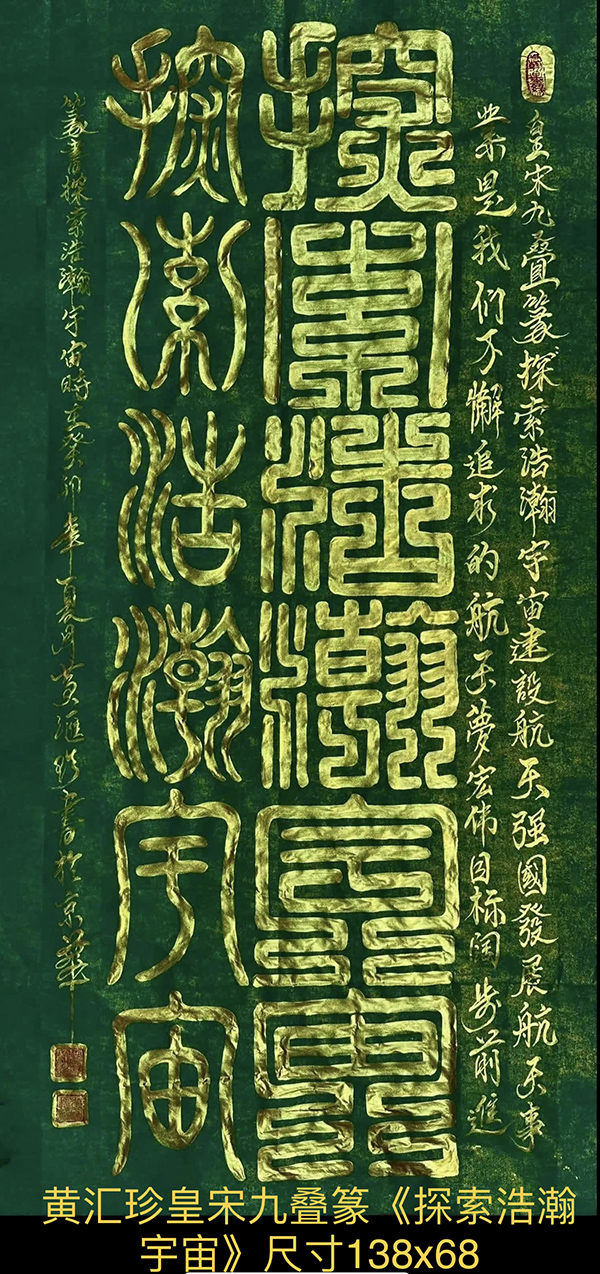 皇宋九叠篆探索浩瀚宇宙建設航天强國發展航天事
業是我们不懈追求的航天夢宏伟目标阔步前進
探索浩瀚宇宙
探索浩瀚宇宙
篆書探索浩瀚宇宙時在癸卯年夏月黄匯珍書於京華
黄汇珍皇宋九叠篆《探索浩瀚
宇宙》尺寸138x68